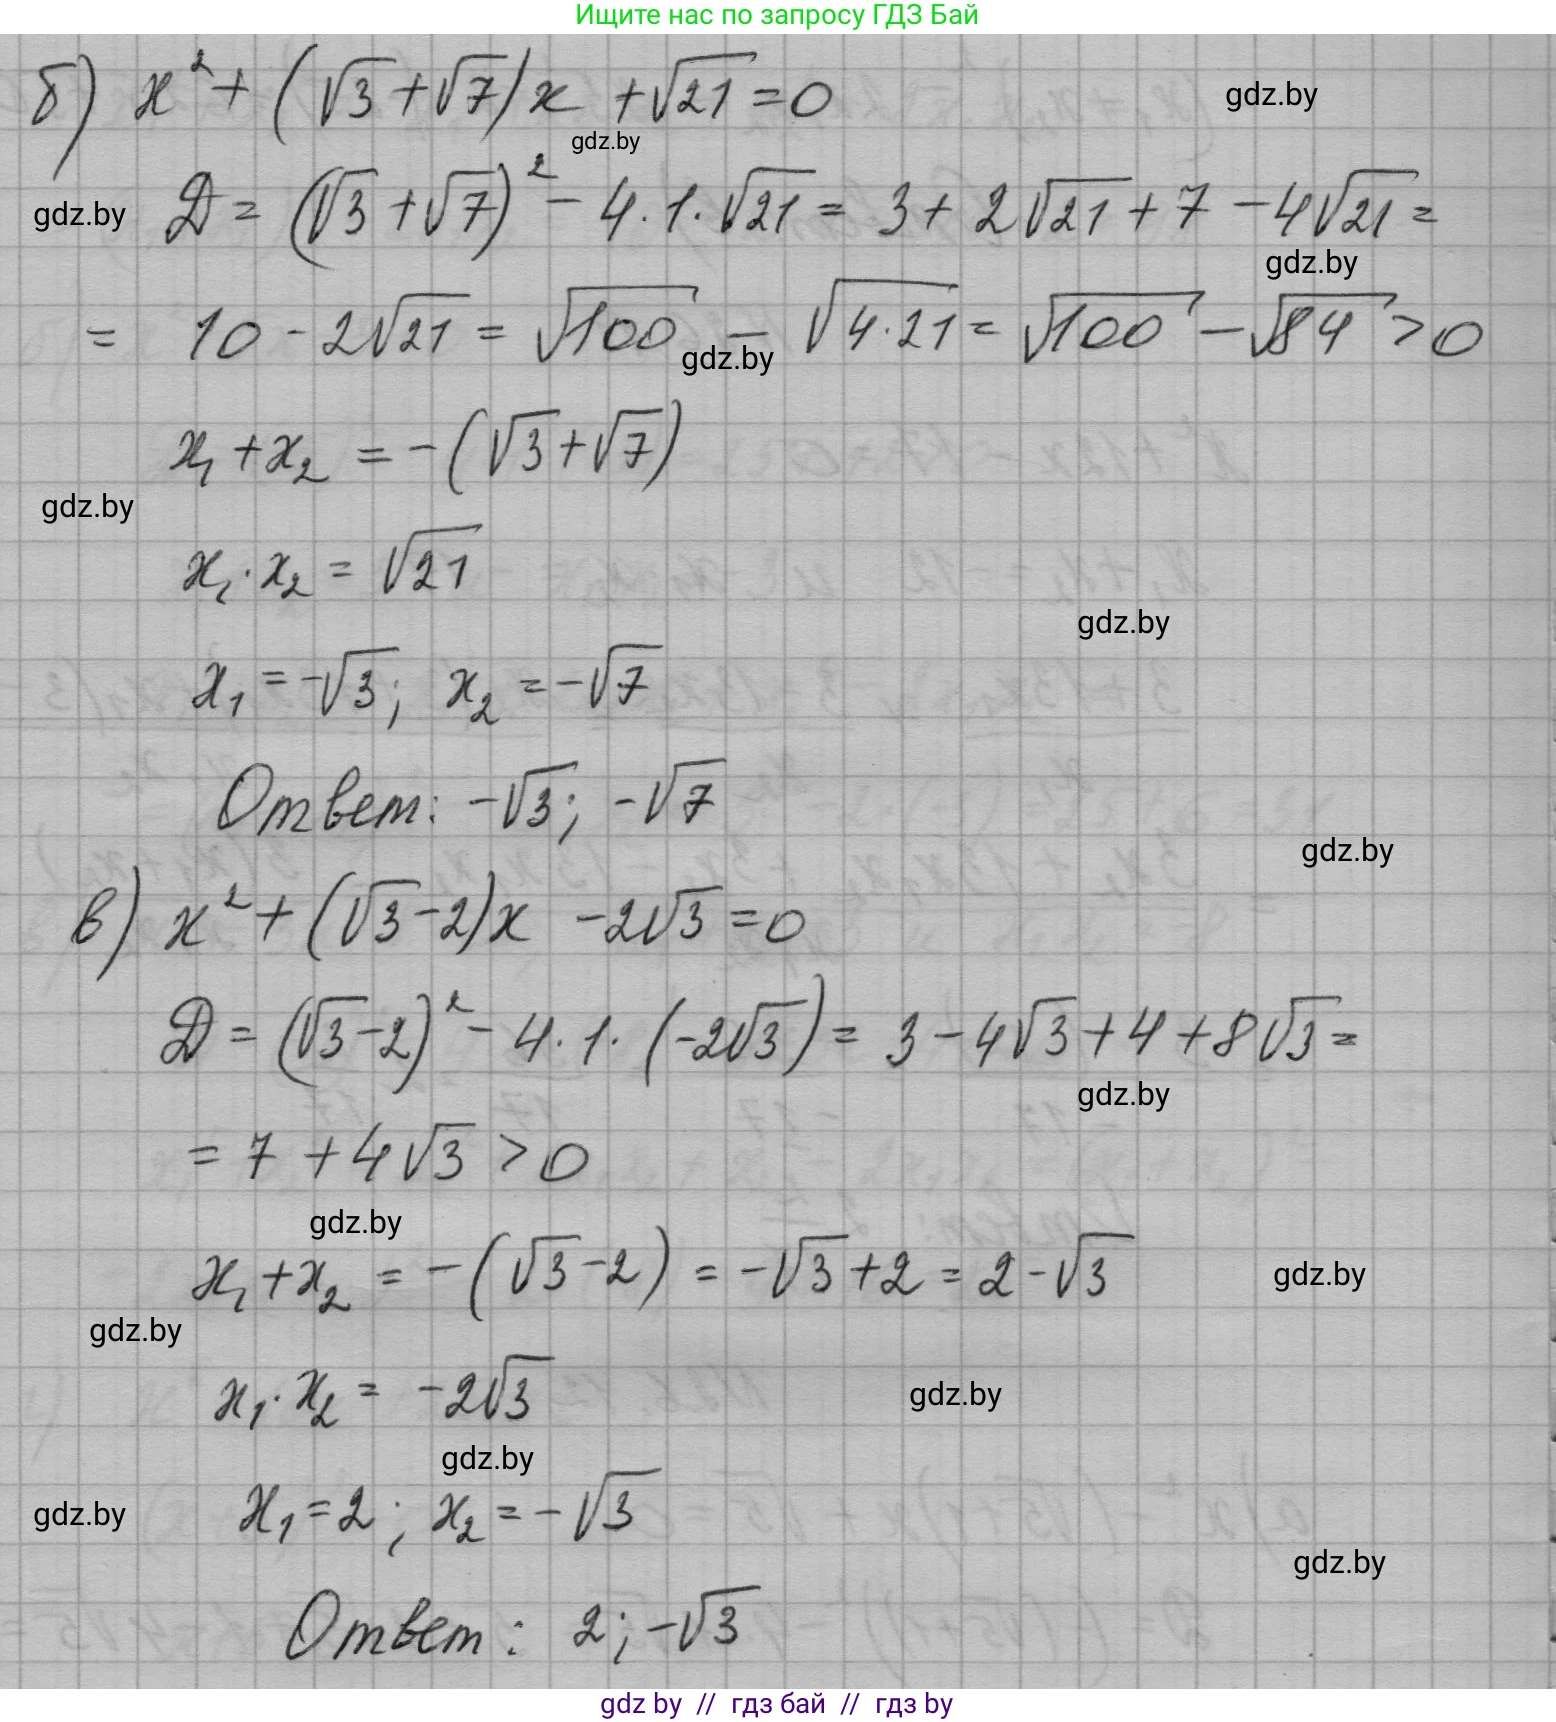 Ищите нас по запросу ГДЗ Бай
б) x² + (√3 + √7)x + √21 = 0
gdz.by
gdz.by
gdz.by
D = (√3 + √7)² - 4·1·√21 = 3 + 2√21 + 7 - 4√21 =
gdz.by
= 10 - 2√21 = √100 - √4·21 = √100 - √84 > 0
gdz.by
x₁ + x₂ = -(√3 + √7)
gdz.by
x₁·x₂ = √21
gdz.by
x₁ = -√3; x₂ = -√7
Ответ: -√3; -√7
gdz.by
в) x² + (√3 - 2)x - 2√3 = 0
D = (√3 - 2)² - 4·1·(-2√3) = 3 - 4√3 + 4 + 8√3 =
gdz.by
= 7 + 4√3 > 0
gdz.by
x₁ + x₂ = -(√3 - 2) = -√3 + 2 = 2 - √3
gdz.by
gdz.by
x₁·x₂ = -2√3
gdz.by
gdz.by
x₁ = 2; x₂ = -√3
gdz.by
gdz.by
Ответ: 2; -√3
gdz by // гдз бай // гдз by